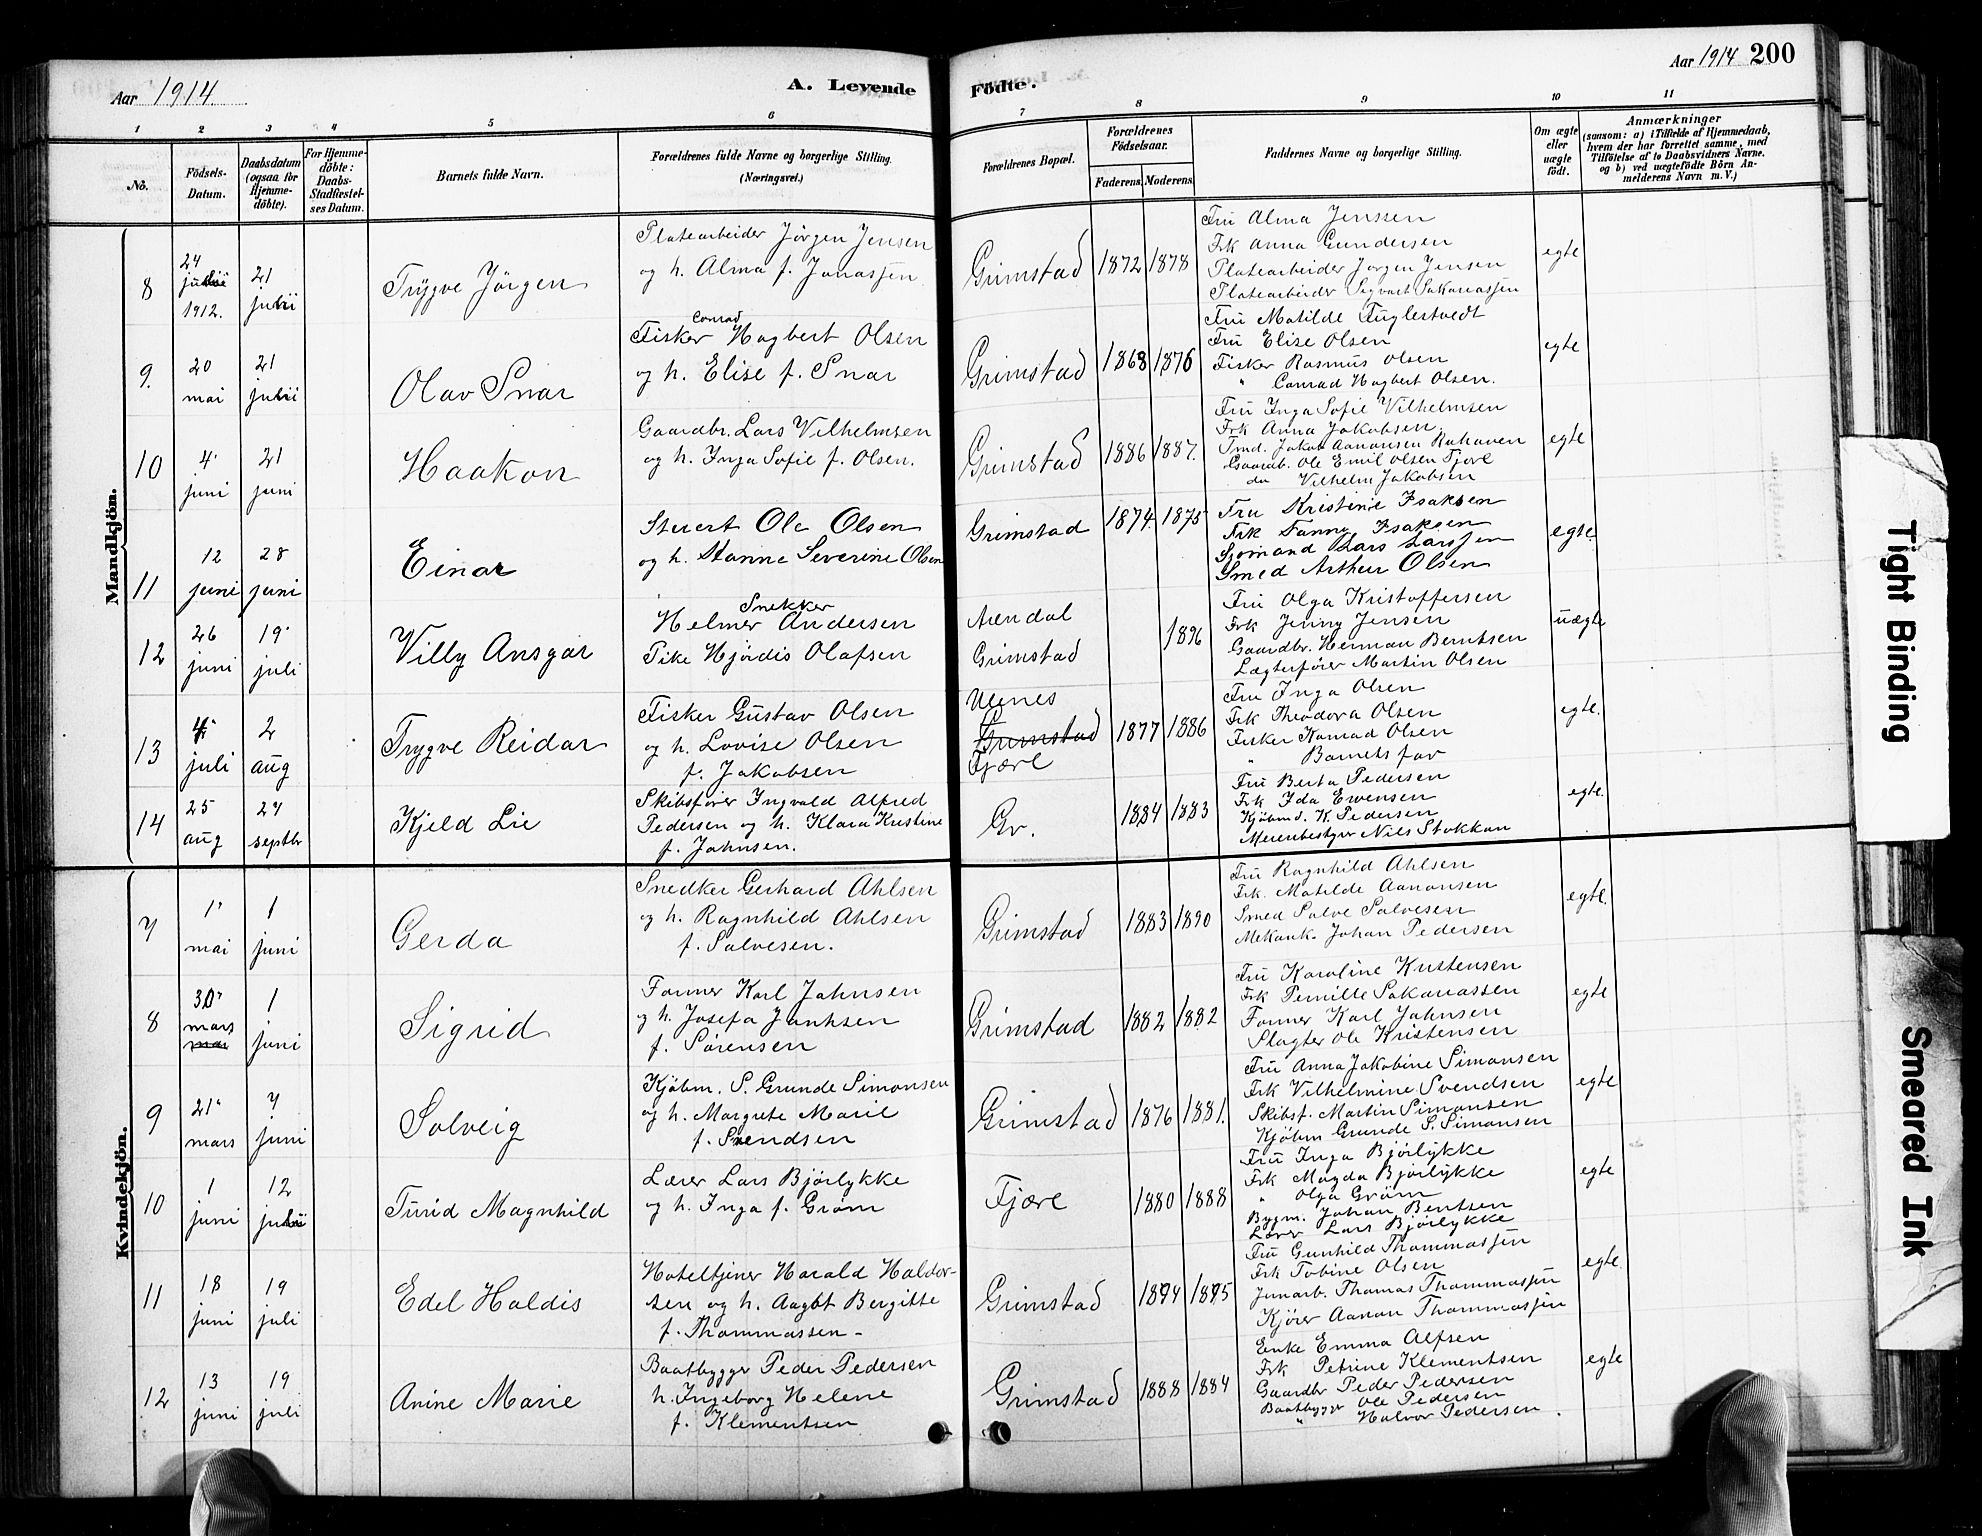 Aar 1914.
A. Levende
Födte.
Aar 1914 200
1 2 3 4 5 6 7 8 9 10 11
No.
Födsels-
Datum.
Daabsdatum
(ogsaa for
Hjemme-
döbte).
For Hjemme-
döbte:
Daabs-
Stadfæstel-
ses Datum.
Barnets fulde Navn.
Forældrenes fulde Navne og borgerlige Stilling.
(Næringsvei.)
Forældrenes Bopæl.
Forældrenes
Födselsaar.
Faderens. Moderens.
Faddernes Navne og borgerlige Stilling.
Om ægte
eller
uægte
födt.
Anmærkninger
(saasom: a) i Tilfælde af Hjemmedaab,
hvem der har forrettet samme, med
Tilföielse af to Daabsvidners Navne.
og b) ved uægtefödte Börn An-
melderens Navn m. V.)
Mandkjön.
8
24
1912.
21
Trygve Jörgen
Platearbeider Jörgen Jensen
og h. Alma f. Jonassen
Grimstad
1872 1878
Fru Alma Jenssen
Frk Anna Gundersen
Platearbeider Jörgen Jensen
Platearbeider Sigvart Sakariassen
egte
9.
20
mai
21
Olav Snar
Conrad
Fisker Hagbert Olsen
og h. Elise f. Snar
Grimstad
1868 1876
Fru Matilde Fuglestvedt
Fru Elise Olsen
Fisker Rasmus Olsen
" Conrad Hagbert Olsen.
egte
10
4
juni
21
juni
Haakon
Gaardbr. Lars Vilhelmsen
og h. Inga Sofie f. Olsen.
Grimstad
1886 1887.
Fru Inga Sofie Vilhelmsen
Frk Anna Jakobsen.
Tmd. Jakob Aanonsen Rahaven
Gaardb. Ole Emil Olsen Fjære
do Vilhelm Jakobsen
egte
11
12
juni
28
juni
Einar
Stuert Ole Olsen
og h. Hanna Severine Olsen
Grimstad
1874. 1875
Fru Kristine Isaksen
Frk Fanny Isaksen
Sjømand Lars Larssen
Smed Arthur Olsen
egte
12
26
juni
19
juli
Villy Ansgar
Snekker
Helmer Andersen
Pike Hjördis Olafsen
Arendal
Grimstad
1896
Fru Olga Kristoffersen
Frk Jenny Jensen
Gaardbr. Herman Berntsen
Lægterfører Martin Olsen
uægte
13
4
juli
2
aug
Trygve Reidar
Fisker Gustav Olsen
og h. Lovise Olsen
f. Jakobsen
Grimstad
Fjære
1877 1886
Fru Inga Olsen
Frk Theodora Olsen
Fisker Konrad Olsen
" Barnets far
egte.
14
25
aug
27
septbr
Kjeld Lie
Skibsfører Ingvald Alfred
Pedersen og h. Klara Kristine
f. Johnsen.
Gr.
1884 1883
Fru Berta Pedersen
Frk Ida Evensen
Kjøbmd. K. Pedersen
Meieribestyrer Nils Stokkan
egte.
Kvindekjön.
7
1
mai
1
juni
Gerda
Snedker Gerhard Ahlsen
og h. Ragnhild Ahlsen
f. Salvesen.
Grimstad
1883 1890
Fru Ragnhild Ahlsen
Frk. Matilde Aanonsen
Smed Salve Salvesen
Mekanik. Johan Pedersen
egte.
8
30
mars
1
juni
Sigrid
Former Karl Johnsen
og h. Josefa Jonhsen
f. Sørensen
Grimstad
1882 1882
Fru Karoline Kristensen
Frk Pernille Sakariassen
Former Karl Johnsen
Slagter Ole Kristensen
egte
9
21
mars
7
juni
Solveig
Kjöbm. S. Grunde Simonsen
og h. Margrete Marie
f. Svendsen
Grimstad
1876 1881.
Fru Anna Jakobine Simonsen
Frk Vilhelmine Svendsen
Skibsf. Martin Simonsen
Kjöbm Grunde S. Simonsen
egte
10
1
juni
12
Turid Magnhild
Lærer Lars Bjørlykke
og h. Inga f. Grøm
Fjære
1880 1888
Fru Inga Bjørlykke
Frk Magda Bjørlykke
" Olga Grøm
Bygm. Johan Bentsen
Lærer Lars Bjørlykke
egte
11
18
juni
19
juli
Edel Haldis
Hoteltjener Harald Haldor-
sen og h. Aagot Bergitte
f. Thommassen -
Grimstad
1894 1895
Fru Gunhild Thommassen
Frk Tobine Olsen
Jernarb. Thomas Thommassen
Kjører Aanon Thommassen
egte.
12
13
juni
19
juli
Anine Marie
Baatbygger Peder Pedersen
h. Ingeborg Helene
f. Klementsen
Grimstad
1888 1884
Enke Emma Alfsen
Frk Petrine Klementsen
Gaardbr Peder Pedersen
Baatbygger Ole Pedersen
" Halvor Pedersen.
egte
Tight Binding
Smeared Ink